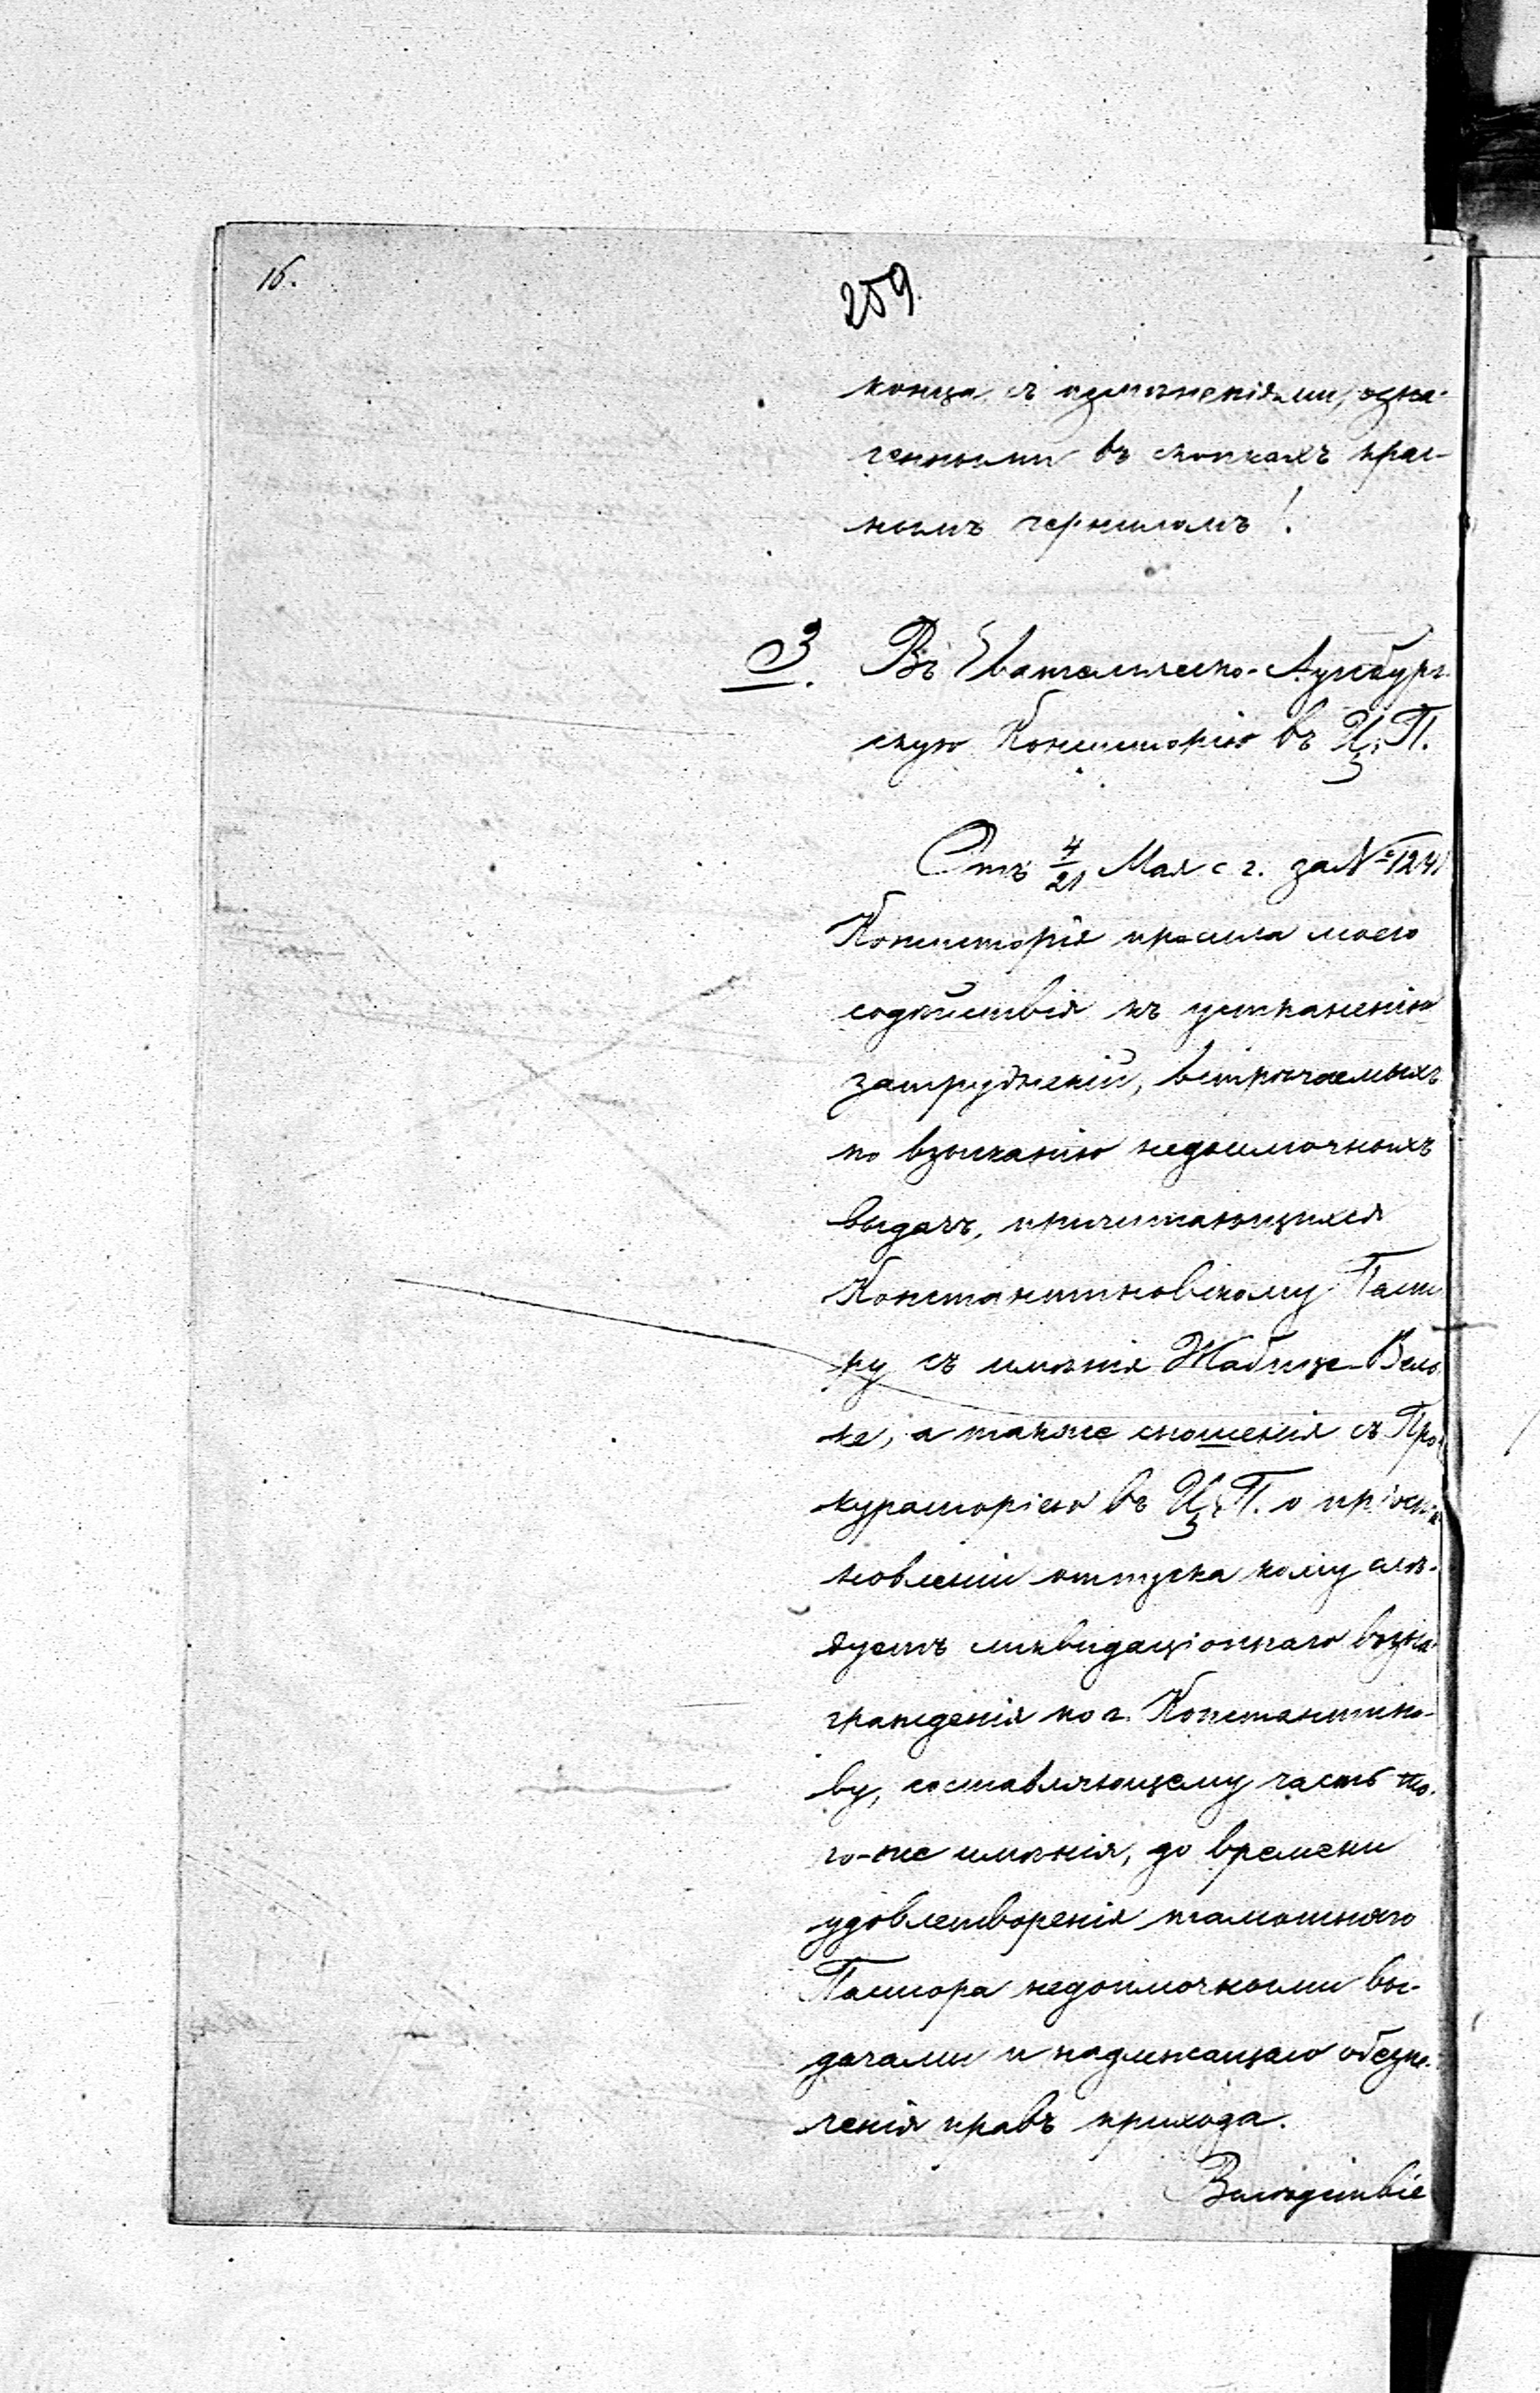 16.
259.
конца, съ измѣненіями, озна-
ченными въ скопкахъ крас-
нымъ чернилом!
3. Въ Евангелическо-Аугсбург-
скую Консисторію въ Ц. П.
Отъ 4/21 Мая с г. за № 1241
Консисторія просила моего
содѣйствія къ устраненію
затрудненій, встрѣчаемыхъ
по взысканію недоимочныхъ
выдачъ, причитающихся
Константиновскому Пасто
ру съ имѣнія Жабице-Вель
ке, а также сношенія съ Про
кураторіею въ Ц. П. о пріоста
новленіи отпуска кому слѣ-
дуетъ ликвидаціоннаго возна-
гражденія по г. Константино-
ву, составляющему часть то-
го-же имѣнія, до времени
удовлетворенія тамошняго
Пастора недоимочными вы-
дачами и надлежащаго обезпе-
ченія правъ прихода.
Вслѣдствіе